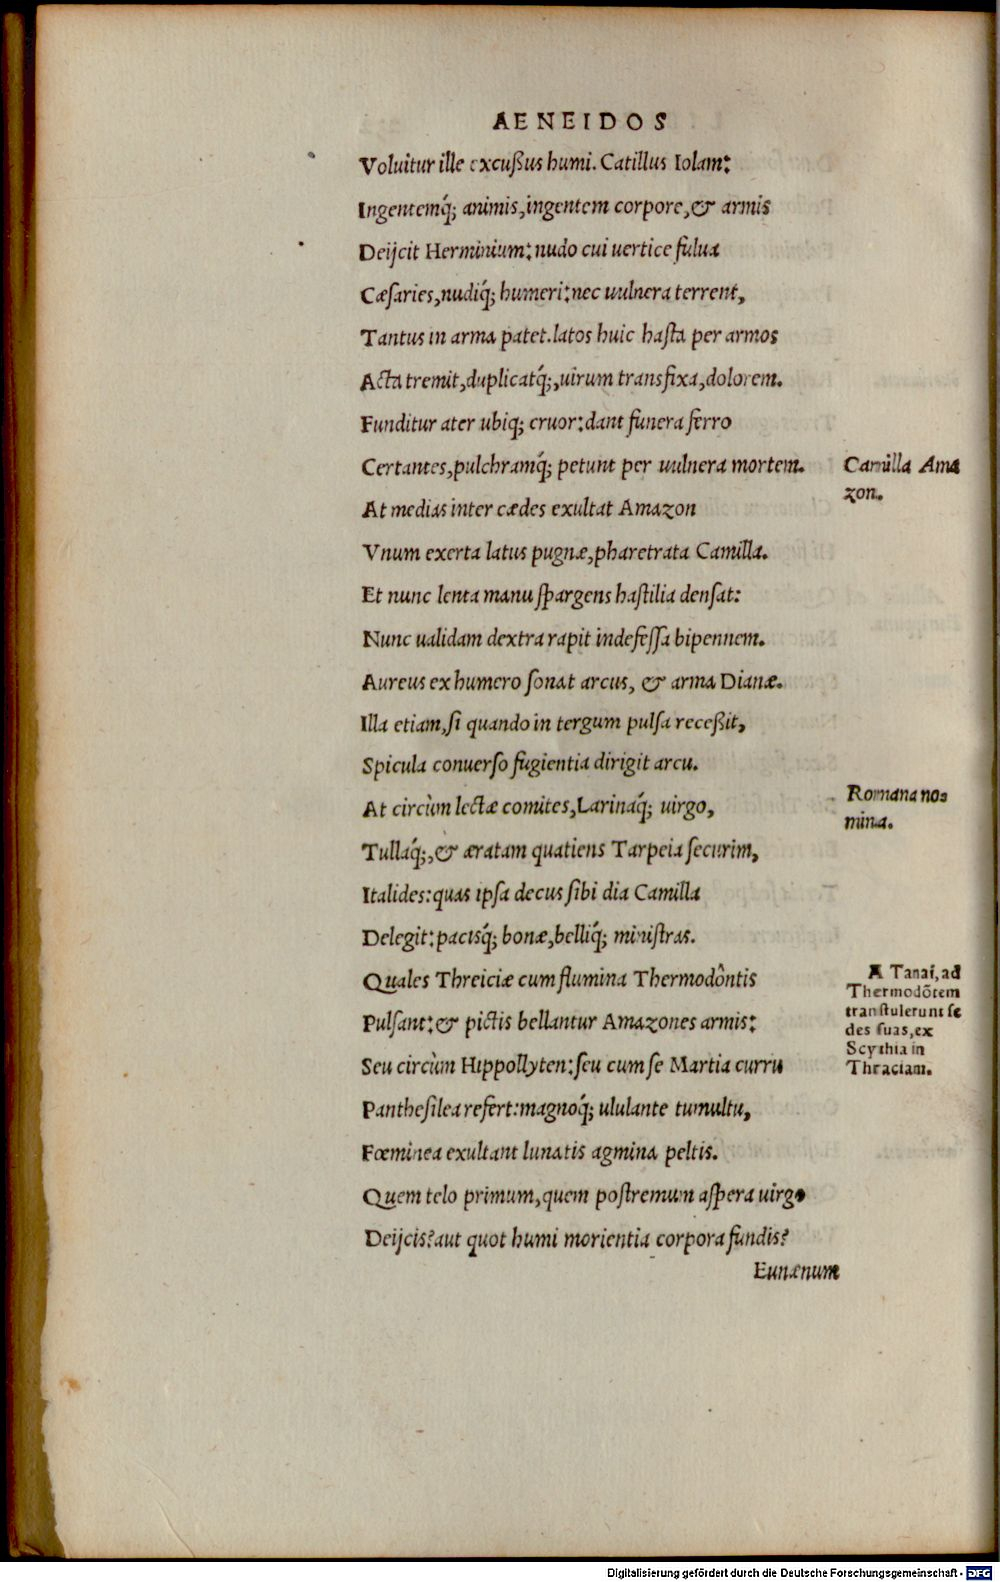 AENEIDOS
Voluitur ille excußus humi. Catillus Iolam:
Ingentemq́; animis, ingentem corpore, & armis
Deijcit Herminium: nudo cui uertice fulua
Cæsaries, nudiq́; humeri: nec uulnera terrent,
Tantus in arma patet. latos huic hasta per armos
Acta tremit, duplicatq́;, uirum transfixa, dolorem.
Funditur ater ubiq; cruor: dant funera ferro
Certantes, pulchramq́; petunt per uulnera mortem.
Camilla Ama
zon.
At medias inter cædes exultat Amazon
Vnum exerta latus pugnæ, pharetrata Camilla.
Et nunc lenta manu spargens hastilia densat:
Nunc ualidam dextra rapit indefessa bipennem.
Aureus ex humero sonat arcus, & arma Dianæ.
Illa etiam, si quando in tergum pulsa receßit,
Spicula conuerso fugientia dirigit arcu.
Romana no=
mina.
At circùm lectæ comites, Larinaq́; uirgo,
Tullaq́;, & æratam quatiens Tarpeia securim,
Italides: quas ipsa decus sibi dia Camilla
Delegit: pacisq́; bonæ, belliq́; ministras.
Quales Threiciæ cum flumina Thermodôntis
A Tanaï, ad
Thermodõtem
transtulerunt se
des suas, ex
Scythia in
Thraciam.
Pulsant: & pictis bellantur Amazones armis:
Seu circùm Hippollyten: seu cum se Martia curru
Panthesilea refert: magnoq́; ululante tumultu,
Fœminea exultant lunatis agmina peltis.
Quem telo primum, quem postremum aspera uirgo
Deijcis? aut quot humi morientia corpora fundis?
Eunæum
Digitalisierung gefördert durch die Deutsche Forschungsgemeinschaft - DFG